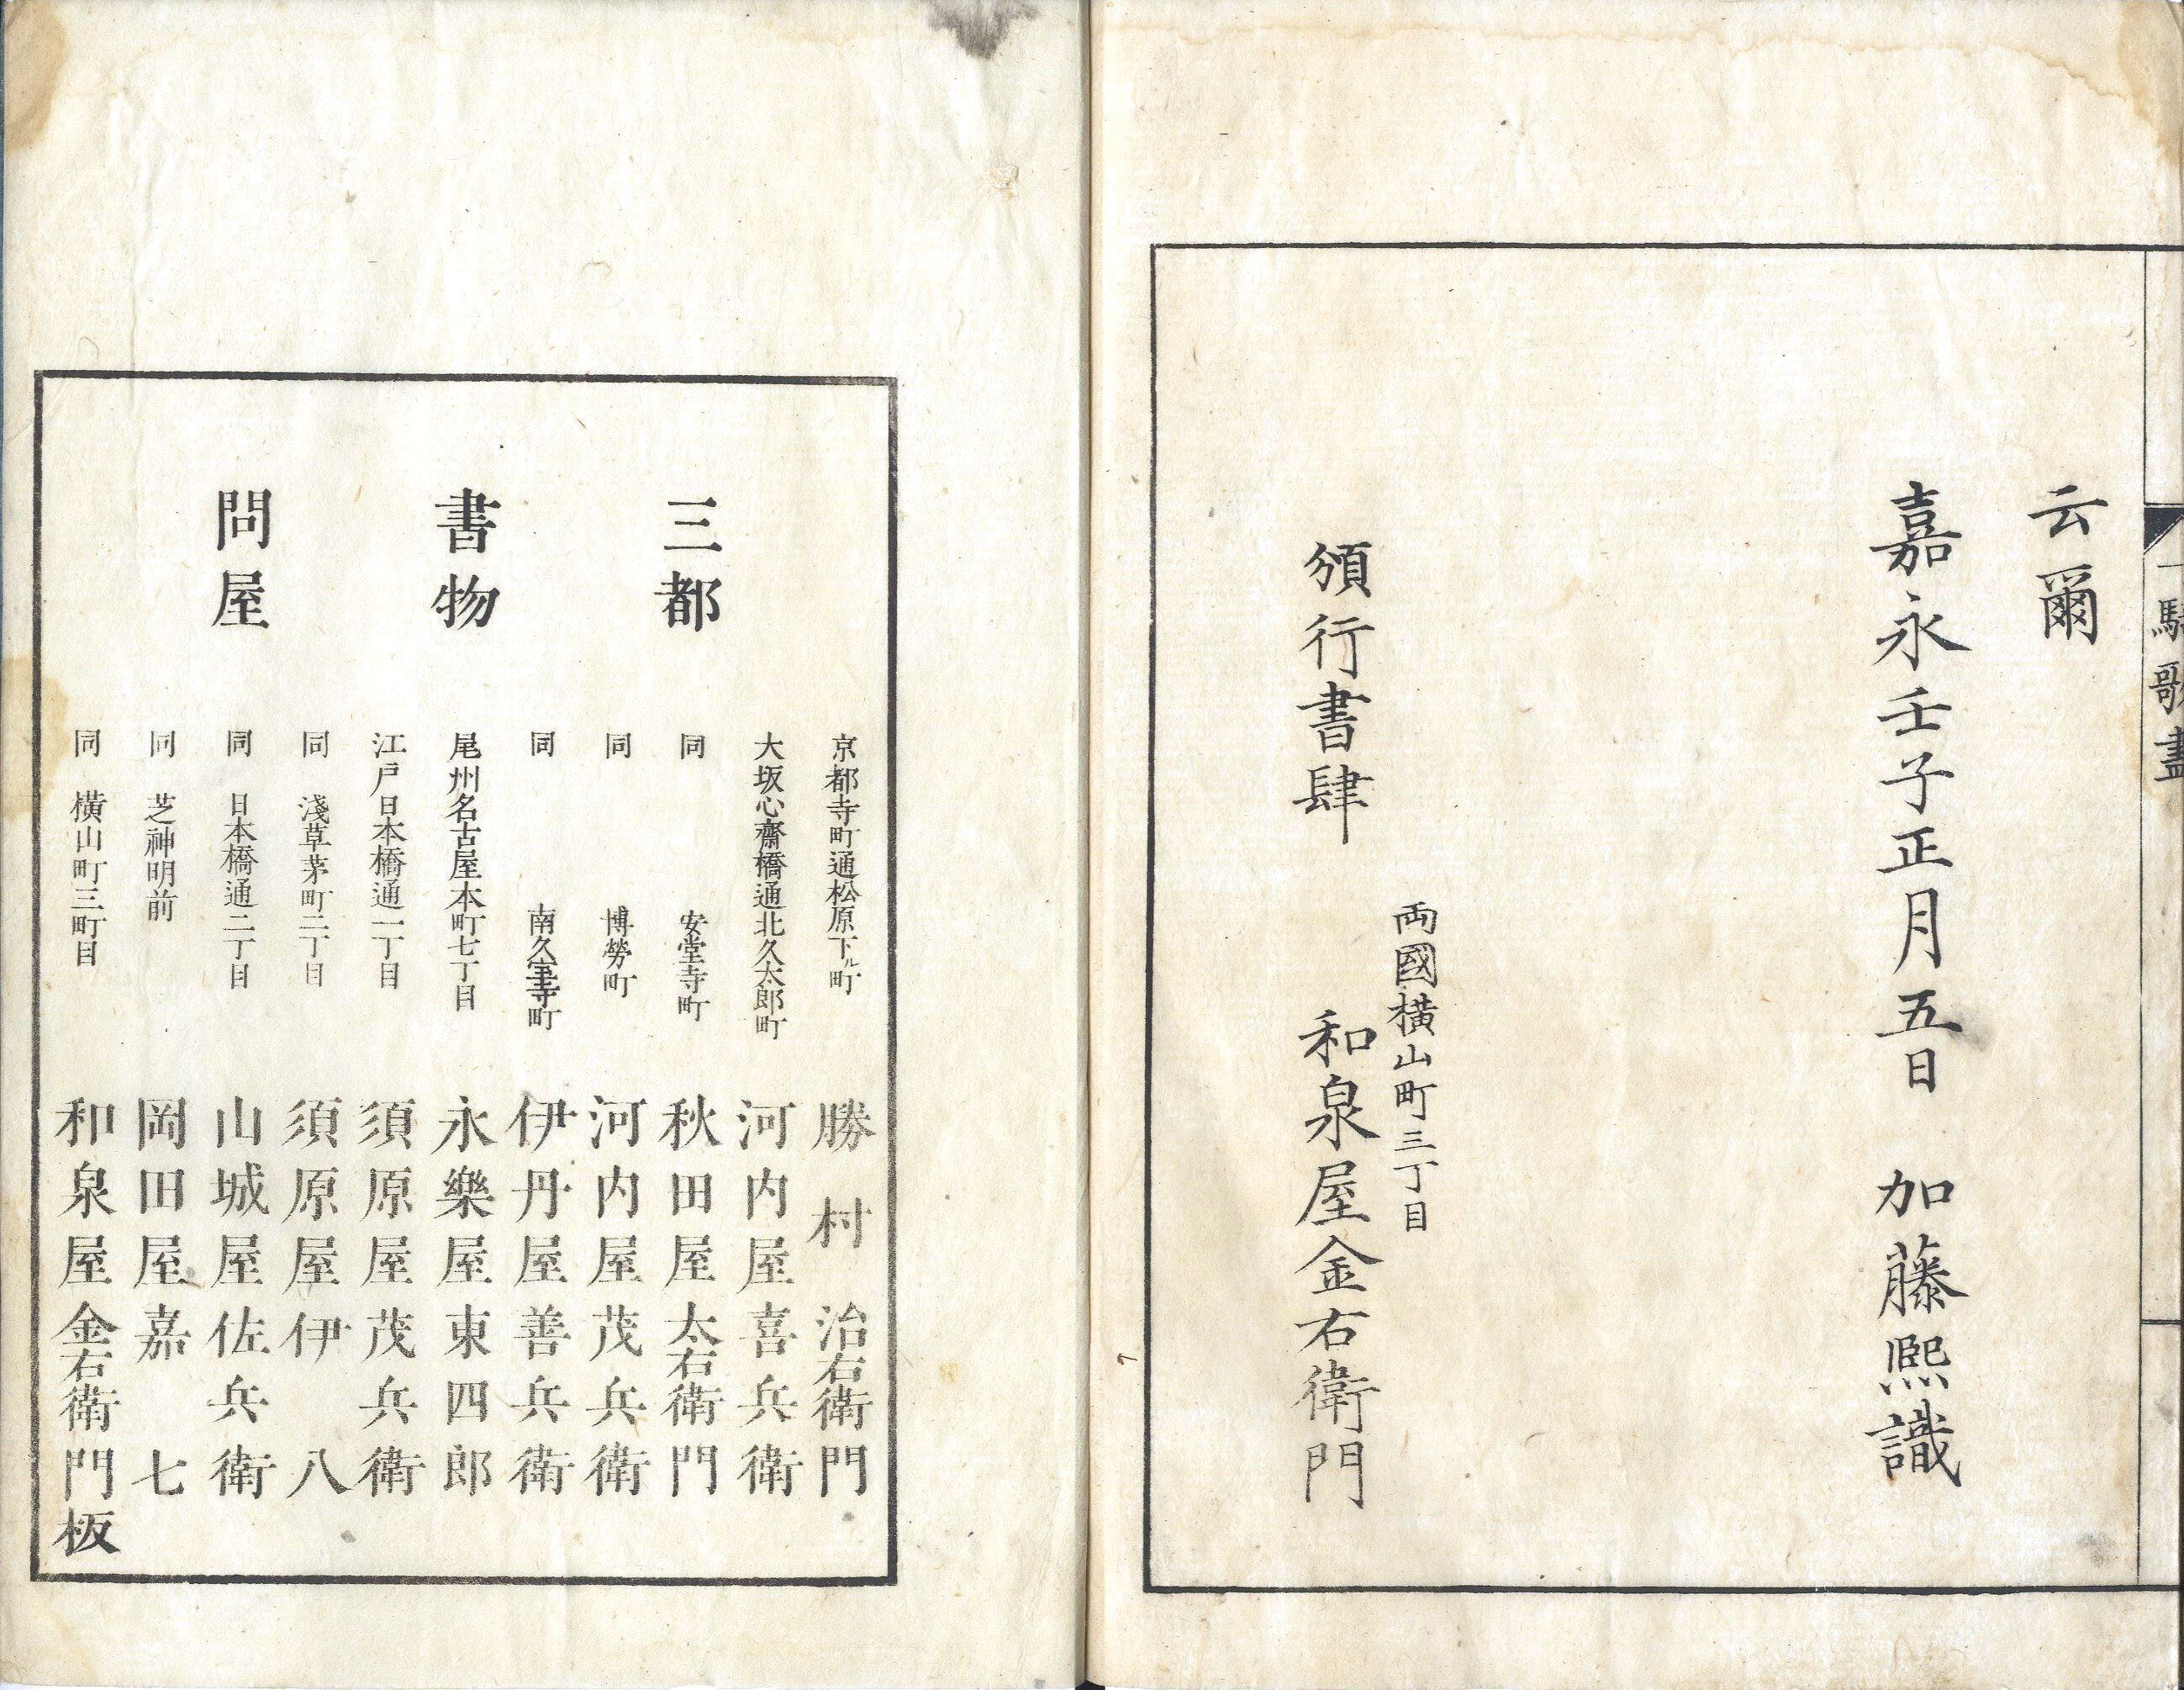 一騎歌盡
云爾
嘉永壬子正月五日　加藤熙識
頒行書肆　両國横山町三丁目
和泉屋金右衛門
三都
書物
問屋
京都寺町通松原下ル町　勝村治右衛門
大坂心齋橋通北久太郎町　河内屋喜兵衛
同　安堂寺町　秋田屋太右衛門
同　博勞町　河内屋茂兵衛
同　南久寳寺町　伊丹屋善兵衛
尾州名古屋本町七丁目　永樂屋東四郎
江戸日本橋通一丁目　須原屋茂兵衛
同　淺草茅町二丁目　須原屋伊八
同　日本橋通二丁目　山城屋佐兵衛
同　芝神明前　岡田屋嘉七
同　横山町三町目　和泉屋金右衛門板